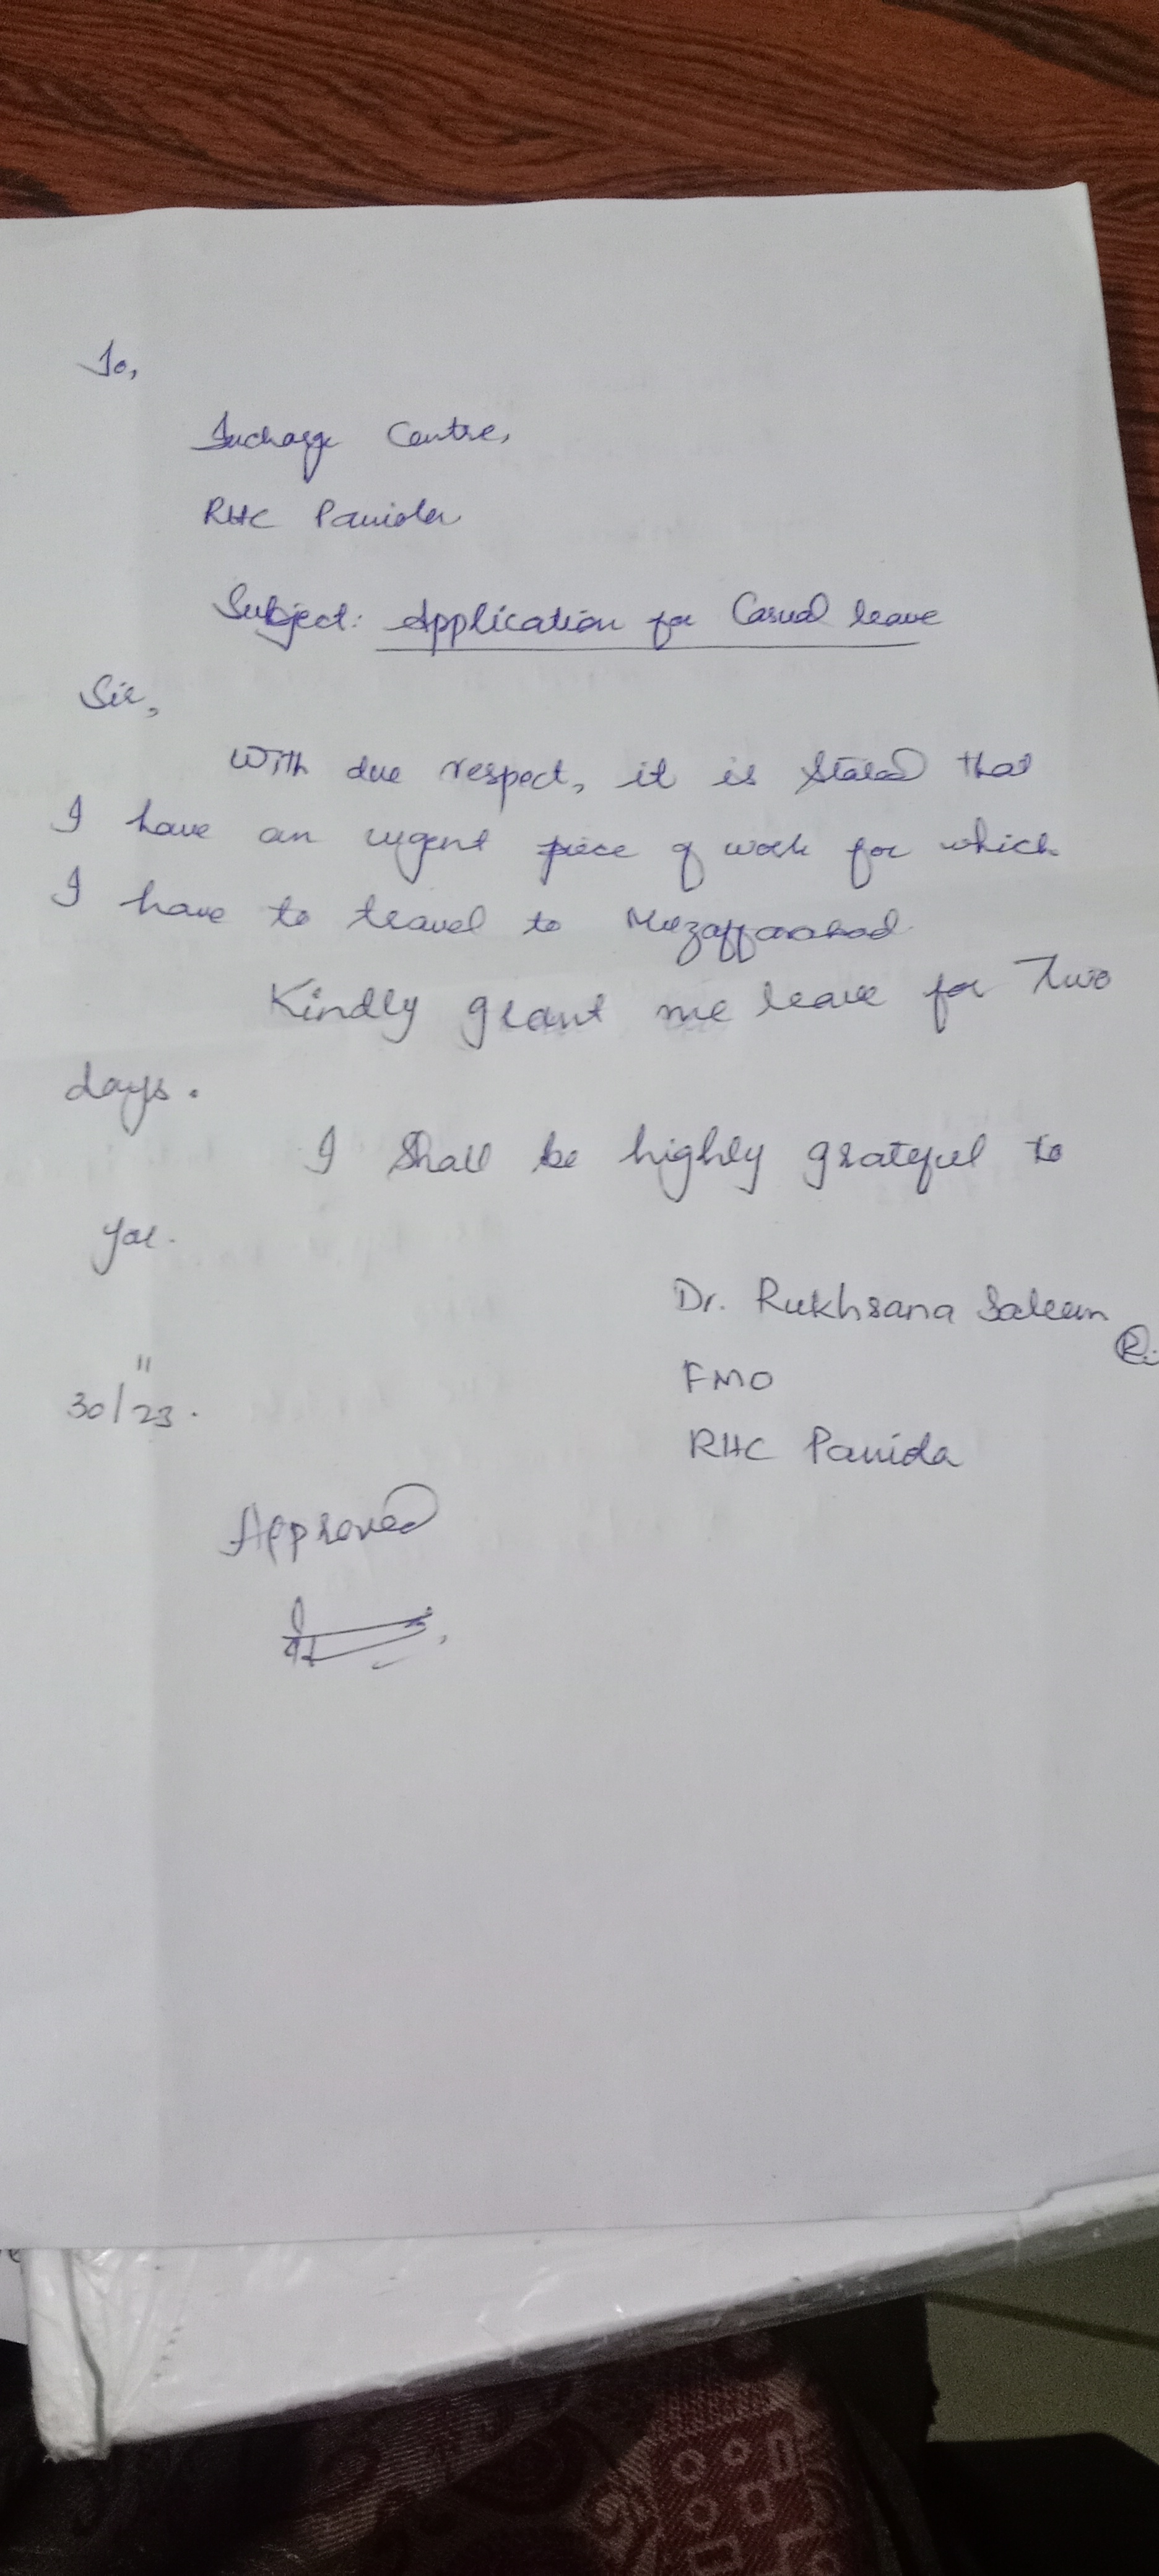 To,
Incharge Centre,
RHC Paniola
Subject: Application for Casual leave
Sir,
With due respect, it is stated that
I have an urgent piece of work for which
I have to travel to Muzaffarabad.
Kindly grant me leave for Two
days.
I shall be highly grateful to
you.
Dr. Rukhsana Saleem
FMO
RHC Paniola
11
30/23.
Approved